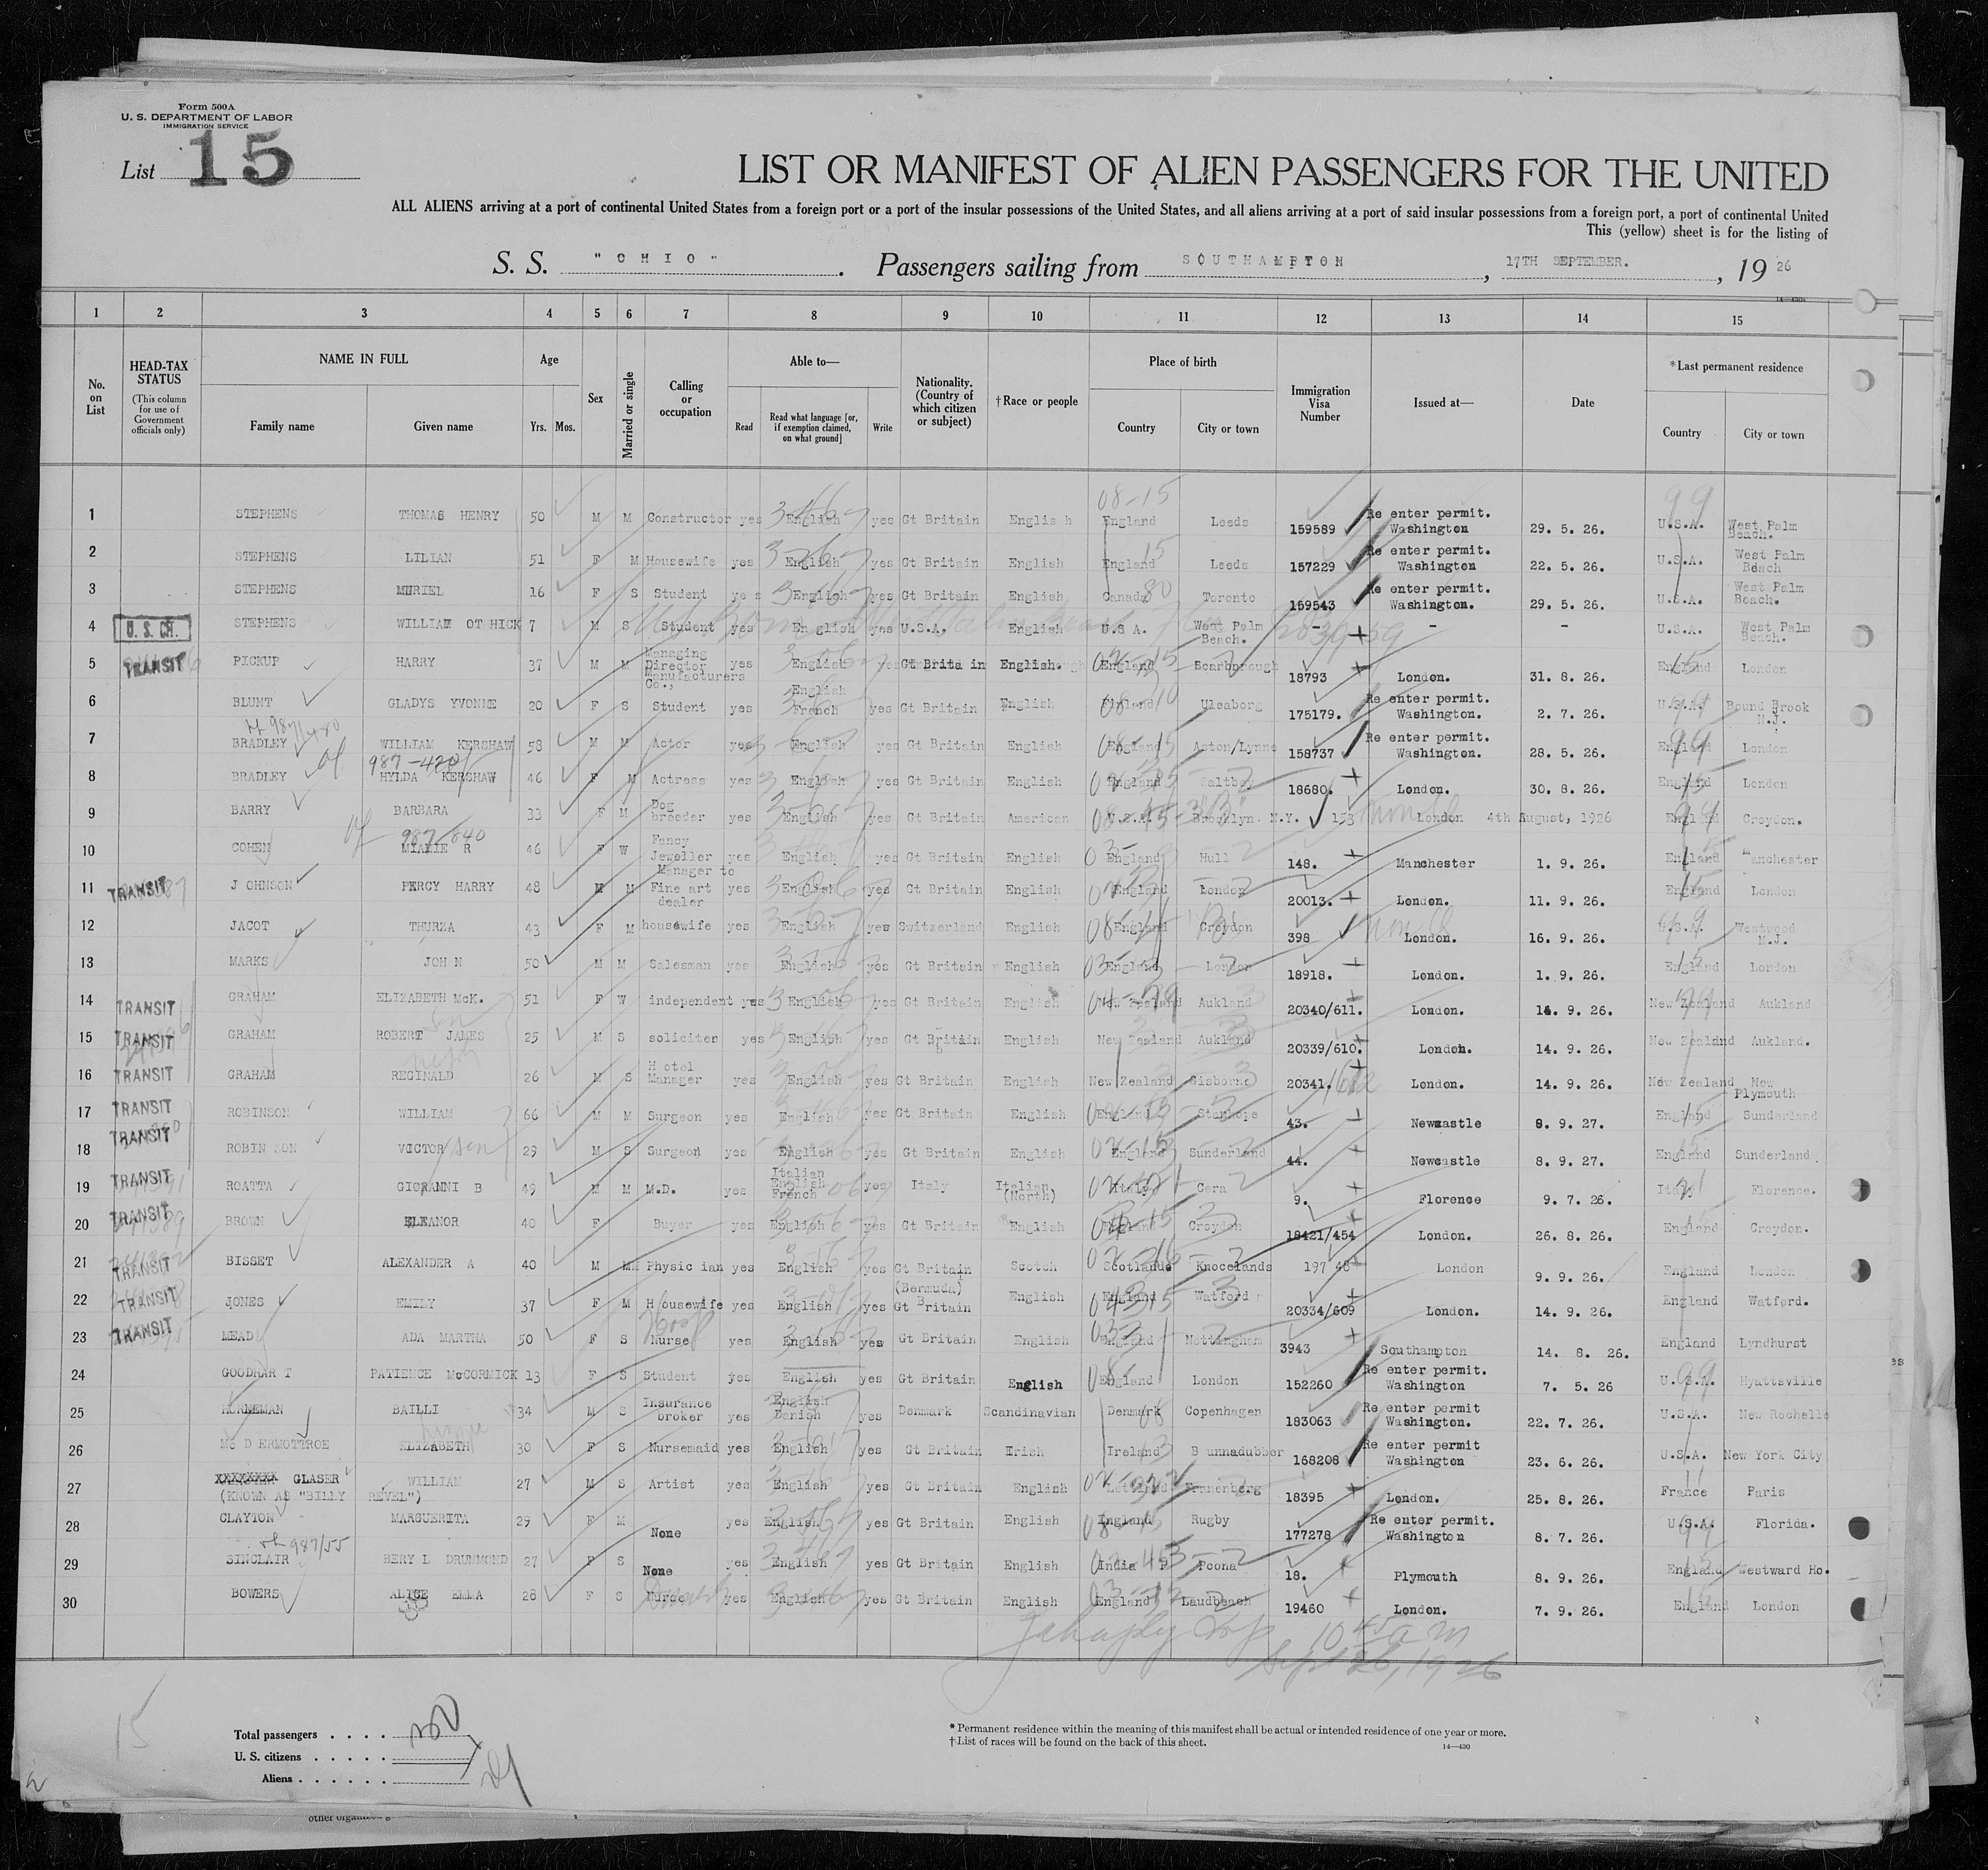 Form 500A
U. S. DEPARTMENT OF LABOR
IMMIGRATION SERVICE
List 15
LIST OR MANIFEST OF ALIEN PASSENGERS FOR THE UNITED
ALL ALIENS arriving at a port of continental United States from a foreign port or a port of the insular possessions of the United States, and all aliens arriving at a port of said insular possessions from a foreign port, a port of continental United
This (yellow) sheet is for the listing of
S. S. "OHIO" . Passengers sailing from SOUTHAMPTON, 17TH SEPTEMBER., 19 26
1 2 3 4 5 6 7 8 9 10 11 12 13 14 15
No. on List
HEAD-TAX STATUS (This column for use of Government officials only)
NAME IN FULL Family name Given name
Age Yrs. Mos.
Sex
Married or single
Calling or occupation
Able to— Read Read what language [or, if exemption claimed, on what ground] Write
Nationality. (Country of which citizen or subject)
†Race or people
Place of birth Country City or town
Immigration Visa Number
Issued at—
Date
*Last permanent residence Country City or town
1 STEPHENS THOMAS HENRY 50 M M Constructor yes English yes Gt Britain Englis h England Leeds 159589 Re enter permit. Washington 29. 5. 26. U.S.A. West Palm Beach.
2 STEPHENS LILIAN 51 F M Housewife yes English yes Gt Britain English England Leeds 157229 Re enter permit. Washington 22. 5. 26. U.S.A. West Palm Beach
3 STEPHENS MURIEL 16 F S Student ye s English yes Gt Britain English Canada Toronto 159543 Re enter permit. Washington. 29. 5. 26. U.S.A. West Palm Beach.
4 U. S. CH. STEPHENS WILLIAM OT HICK 7 M S Student yes En glish yes U.S.A, English U.S A. West Palm Beach. - - - U.S.A. West Palm Beach.
5 TRANSIT PICKUP HARRY 37 M M Managing Director Manufacturers Co., yes English yes Gt Brita in English. England Scarborough 18793 London. 31. 8. 26. England London
6 BLUNT GLADYS YVONNE 20 F S Student yes English French yes Gt Britain English Finland Uleaborg 175179. Re enter permit. Washington. 2. 7. 26. U.S.A. Bound Brook N.J.
7 BRADLEY WILLIAM KERSHAW 58 M M Actor yes English yes Gt Britain English England Aston/Lynne 158737 Re enter permit. Washington. 28. 5. 26. England London
987-420
8 BRADLEY HYLDA KERSHAW 46 F M Actress yes English yes Gt Britain English England Saltby 18680. London. 30. 8. 26. England London
9 BARRY BARBARA 33 F M Dog breeder yes English yes Gt Britain American U.S.A. Brooklyn N.Y. 153 London 4th August, 1926 England Croydon.
987/840
10 COHEN MINNIE R 46 F W Fancy Jeweller yes English yes Gt Britain English England Hull 148. Manchester 1. 9. 26. England Manchester
11 TRANSIT J OHNSON PERCY HARRY 48 M M Manager to Fine art dealer yes English yes Gt Britain English England London 20013. London. 11. 9. 26. England London
12 JACOT THURZA 43 F M housewife yes English yes Switzerland English England Croydon 398 London. 16. 9. 26. U.S.A. Westwood N.J.
13 MARKS JOH N 50 M M Salesman yes English yes Gt Britain English England London 18918. London. 1. 9. 26. England London
14 TRANSIT GRAHAM ELIZABETH McK. 51 F W independent yes English yes Gt Britain English New Zealand Aukland 20340/611. London. 14. 9. 26. New Zealand Aukland
15 TRANSIT GRAHAM ROBERT JAMES 25 M S soliciter yes English yes Gt Britain English New Zealand Aukland 20339/610. London. 14. 9. 26. New Zealand Aukland.
16 TRANSIT GRAHAM REGINALD 26 M S H otel Manager yes English yes Gt Britain English New Zealand Gisborne 20341. 612 London. 14. 9. 26. New Zealand New Plymouth
17 TRANSIT ROBINSON WILLIAM 66 M M Surgeon yes English yes Gt Britain English England Stanhope 43. Newcastle 8. 9. 27. England Sunderland
18 TRANSIT ROBIN SON VICTOR son 29 M S Surgeon yes English yes Gt Britain English England Sunderland 44. Newcastle 8. 9. 27. England Sunderland
19 TRANSIT ROATTA GIOVANNI B 49 M M M.D. yes Italian English French yes Italy Italian (North) Italy Cera 9. Florence 9. 7. 26. Italy Florence.
20 TRANSIT BROWN ELEANOR 40 F Buyer yes English yes Gt Britain English England Croydon 18421/454 London. 26. 8. 26. England Croydon.
21 TRANSIT BISSET ALEXANDER A 40 M M Physic ian yes English yes Gt Britain (Bermuda) Scotch Scotland Knocelands 197 48 London 9. 9. 26. England London
22 TRANSIT JONES EMILY 37 F M H ousewife yes English yes Gt Britain English England Watford 20334/609 London. 14. 9. 26. England Watford.
23 TRANSIT MEAD ADA MARTHA 50 F S Nurse yes English yes Gt Britain English England Nottingham 3943 Southampton 14. 8. 26. England Lyndhurst
24 GOODHAR T PATIENCE McCORMICK 13 F S Student yes English yes Gt Britain English England London 152260 Re enter permit. Washington 7. 5. 26 U.S.A. Hyattsville
25 HORNEMAN BAILLI 34 M S Insurance broker yes English Danish yes Denmark Scandinavian Denmark Copenhagen 183063 Re enter permit Washington. 22. 7. 26. U.S.A. New Rochelle
26 Mc D ERMOTTROE ELIZABETH 30 F S Nursemaid yes English yes Gt Britain Irish Ireland B unnadubber 168208 Re enter permit Washington 23. 6. 26. U.S.A. New York City
27 XXXXXXXX GLASER WILLIAM (KNOWN AS "BILLY REVEL") 27 M S Artist yes English yes Gt Britain English 18395 London. 25. 8. 26. France Paris
28 CLAYTON MARGUERITA 29 F M None yes English yes Gt Britain English England Rugby 177278 Re enter permit. Washington 8. 7. 26. U.S.A. Florida.
987/55
29 SINCLAIR BERY L DRUMMOND 27 F S None yes English yes Gt Britain English India Poona 18. Plymouth 8. 9. 26. England Westward Ho.
30 BOWERS ALICE EMMA 28 F S Nurse yes English yes Gt Britain English England Laudbeach 19460 London. 7. 9. 26. England London
10 45 a m
Sept 26, 1926
15
Total passengers . . . . 30
U. S. citizens . . . . .
Aliens . . . . . .
* Permanent residence within the meaning of this manifest shall be actual or intended residence of one year or more.
† List of races will be found on the back of this sheet.
14—430